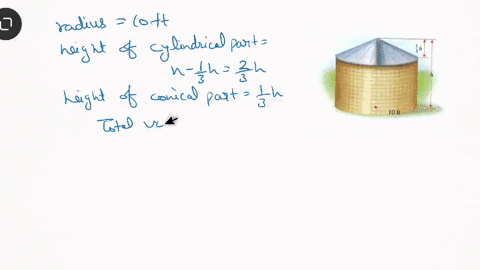 radius = 10 ft
height of cylindrical part =
h - 1/3 h = 2/3 h
height of conical part = 1/3 h
Total
h
10 ft